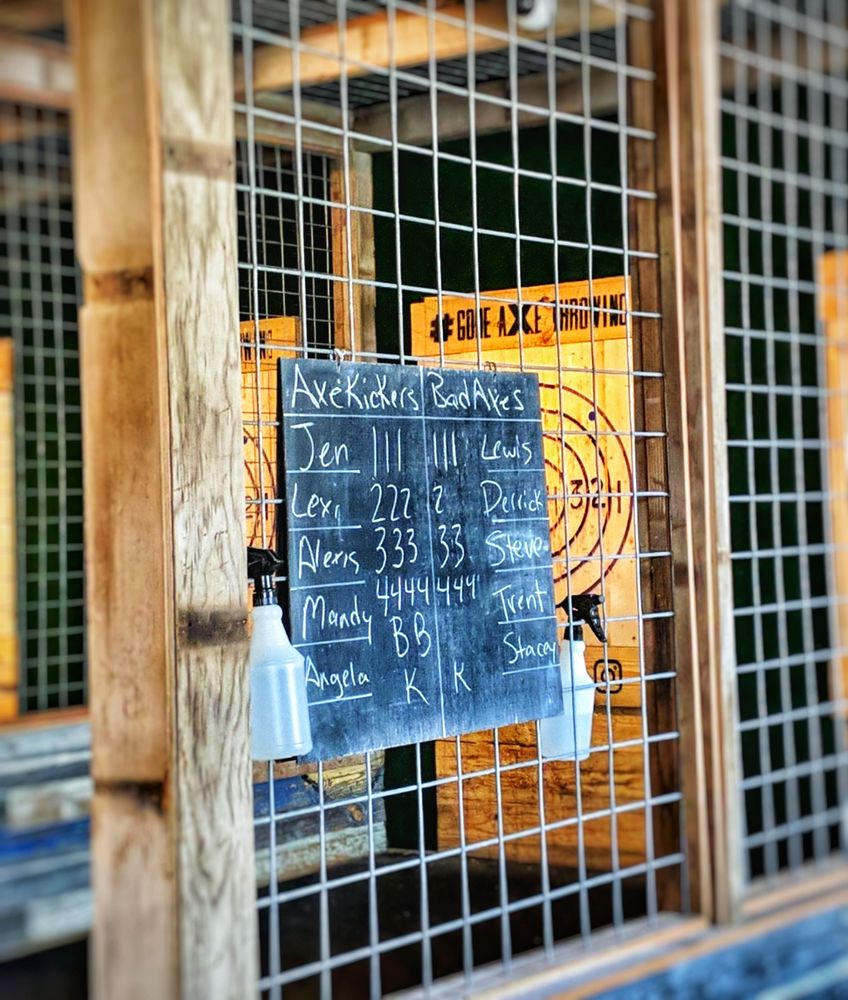 #GONE AXE THROWING
WING
AxeKickers BadAxes
Jen 111 111 Lewis
Lexi 222 2 Derrick
Alexis 333 33 Steve
Mandy 4444 444 Trent
BB
Stacey
Angela K K
321